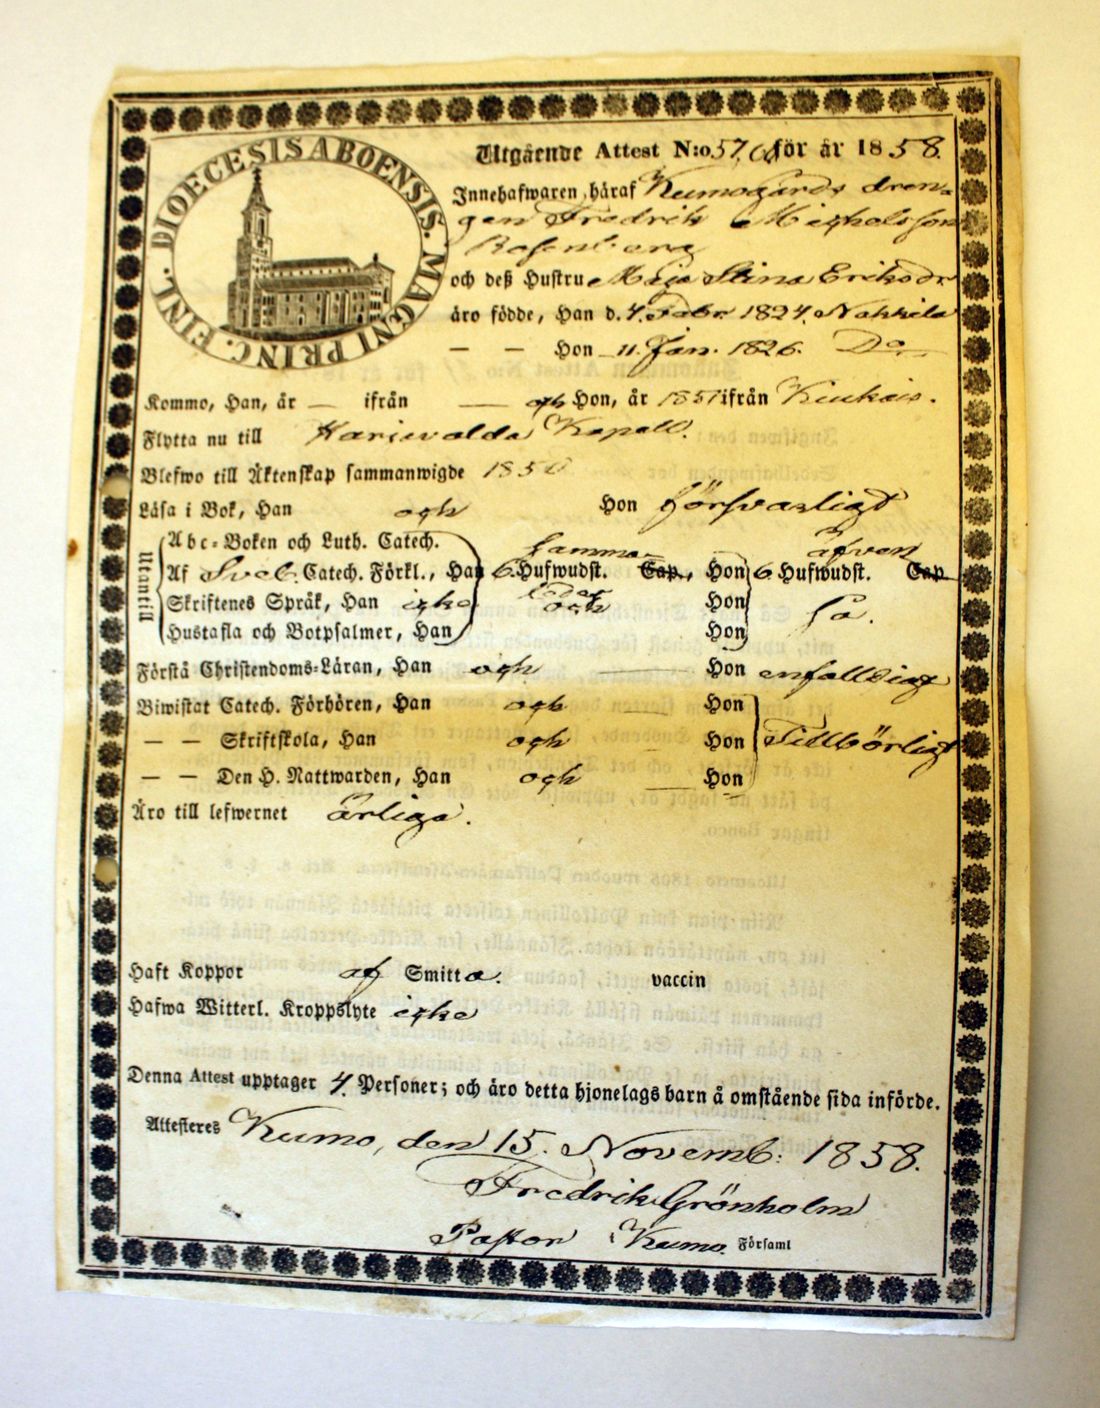 DIOECESIS ABOENSIS. MAGNI PRINC. FINL.
Utgående Attest N:o 57. för år 1858.
Innehafwaren häraf Kumogårds dren-
gen Fredrik Michelsson
Rosenberg
och deß Hustru Maja Stina Eriksdr.
äro födde, Han d. 4. Febr. 1824. Nakkila
— — Hon 11. Jan. 1826. Do
Kommo, Han, år — ifrån — och Hon, år 1857 ifrån Kiukais.
Flytta nu till Harjavalda Kapell.
Blefwo till Äktenskap sammanwigde 1850
Läsa i Bok, Han och Hon försvarligt
Utantill
Abc-Boken och Luth. Catech. samma äfven
Af Sveb. Catech. Förkl., Han 6. Hufwudst. Cap., Hon 6 Hufwudst. Cap.
Skriftenes Språk, Han icke och Hon så.
Hustafla och Botpsalmer, Han Hon
Förstå Christendoms-Läran, Han och — Hon enfaldigt
Biwistat Catech. Förhören, Han och — Hon
— — Skriftskola, Han och — Hon Tillbörligt
— — Den H. Nattwarden, Han och — Hon
Äro till lefwernet ärliga.
Haft Koppor af Smitta. vaccin
Hafwa Witterl. Kroppslyte icke
Denna Attest upptager 4. Personer; och äro detta hjonelags barn å omstående sida införde.
Attesteres Kumo, den 15. Novemb: 1858.
Fredrik Grönholm
Pastor i Kumo. Församl